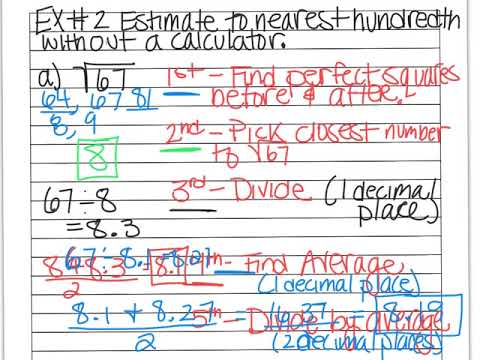 EX#2 Estimate to nearest hundredth
without a calculator.
a) √67
1st - Find perfect squares
before & after.
64, 67 81
8, 9
2nd - Pick closest number
to √67
8
3rd - Divide (1 decimal
place)
67÷8
=8.3
67÷8.1=8.27
8+8.3 = 8.1
2
4th - Find Average
(1 decimal place)
8.1 + 8.27 = 16.37 = 8.19
2
5th - Divide by average
(2 decimal places)